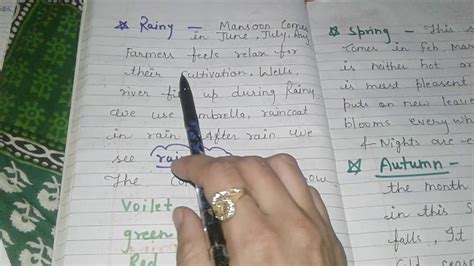 ☆ Rainy — Mansoon Comes
in June, July, Aug
Farmers feels relax for
their cultivation. Wells,
river up during Rainy.
we use umbrella, raincoat
in rain. After rain we
see
The
Voilet
green
Red
☆ Spring — This
comes in Feb, Mar
is neither hot
is most pleasant
puts on new leave
blooms every wh
& Nights are
☆ Autumn —
the month
in this S
falls, It